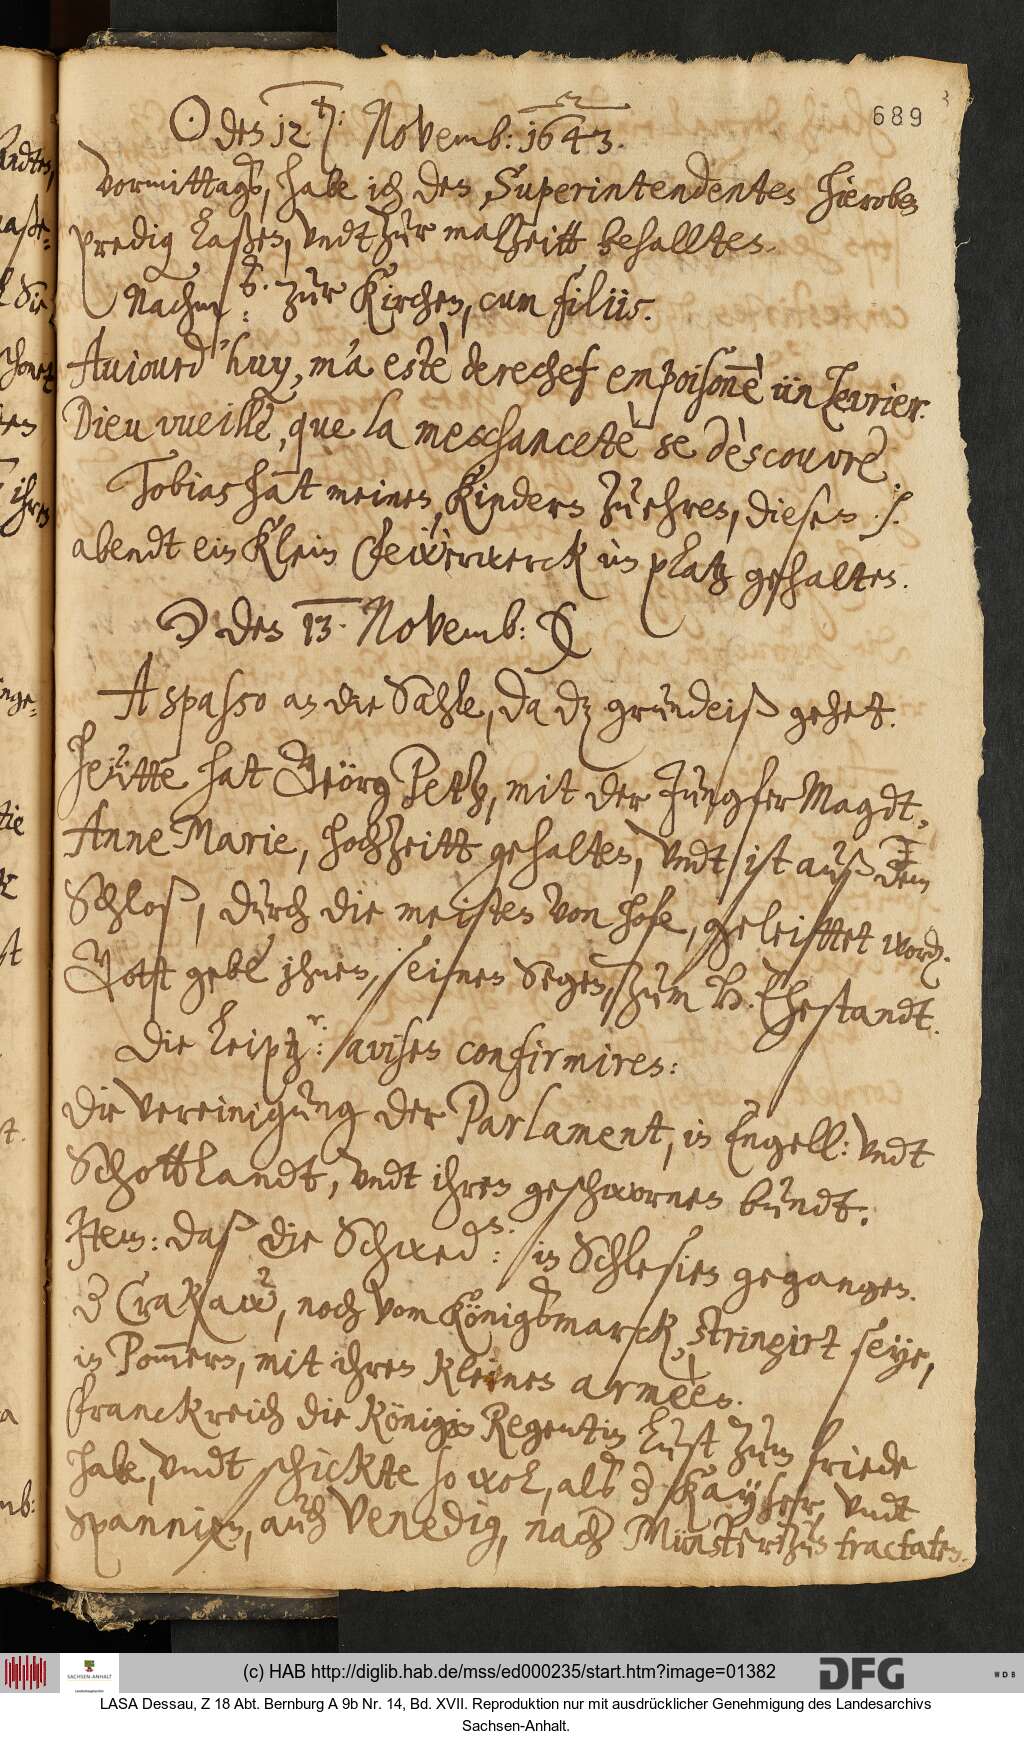 689
☉ den 12.ten: Novemb: 1643.
Vormittags, habe ich den Superintendenten hieroben
predigen laßen, undt zur malzeitt behallten.
Nachm: zur Kirchen, cum filiis.
Aujourd'huy, m'a estè derechef empoisonnè ün levrier.
Dieu vueille, que la meschancetè se dèscouvre.
Tobias hat meinen Kindern zu ehren, diesen
abendt ein klein Feẅerwerck im platz gehalten.
☽ den 13. Novemb:
A spasso an die Sahle, da dz grundeiß gehet.
Heütte hat Geörg Petz, mit der Jungfer Magdt,
Anne Marie, hochzeitt gehalten, undt ist auß dem
Schloß, durch die meisten von hofe, geleittet word.
Gott gebe ihnen, seinen Segen, zum h. Ehestandt.
Die Leiptzr: avisen confirmiren:
Die vereinigung der Parlament, in Engell: undt
Schottlandt, undt ihren geschwornen bundt.
Item: daß die Schwedn: in Schlesien gegangen.
d Crakaw, noch vom Königsmarck, stringirt seye,
in Pommern, mit ihren kleinen armèèn.
Franckreich die Königin Regentin lust zum friede
habe, undt schickte so wol, als d Kayser, undt
Spannien, auch Venedig, nach Münster zun tractaten.
(c) HAB http://diglib.hab.de/mss/ed000235/start.htm?image=01382
DFG
WDB
SACHSEN-ANHALT
LASA Dessau, Z 18 Abt. Bernburg A 9b Nr. 14, Bd. XVII. Reproduktion nur mit ausdrücklicher Genehmigung des Landesarchivs
Sachsen-Anhalt.